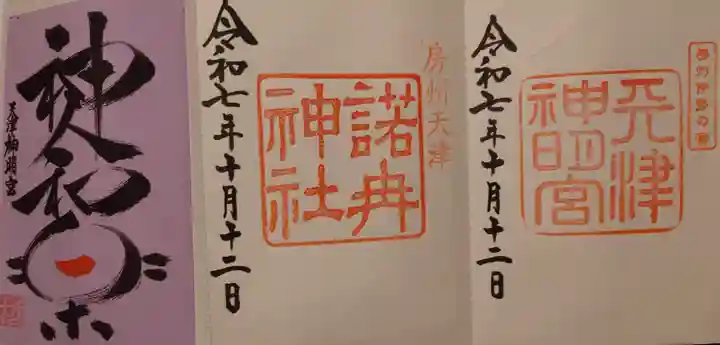 房州伊勢の宮
天津
神明宮
令和七年十月十二日
房州天津
諾冉
神社
令和七年十月十二日
神人和楽
天津神明宮